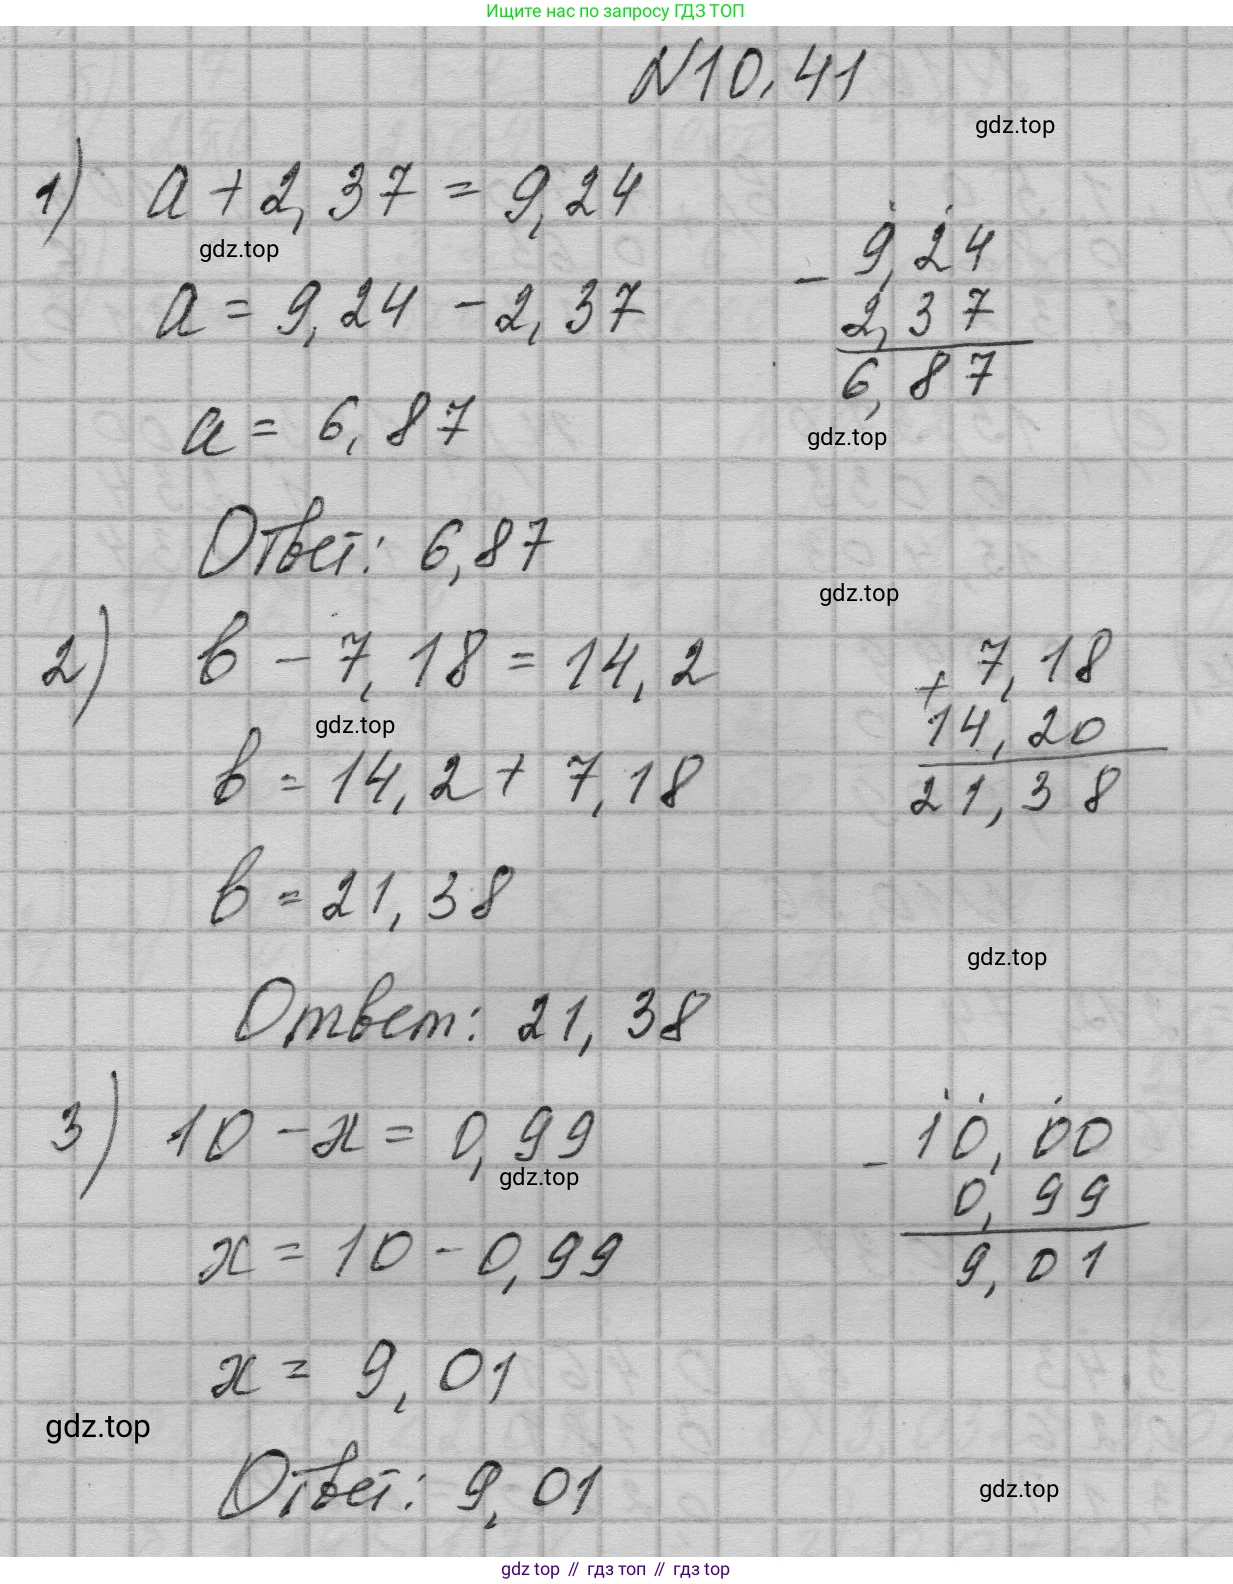 Ищите нас по запросу ГДЗ ТОП
№10.41
gdz.top
1) a + 2,37 = 9,24
gdz.top
a = 9,24 - 2,37
- 9,24
2,37
6,87
gdz.top
a = 6,87
Ответ: 6,87
gdz.top
2) в - 7,18 = 14,2
gdz.top
в = 14,2 + 7,18
+ 7,18
14,20
21,38
в = 21,38
gdz.top
Ответ: 21,38
3) 10 - x = 0,99
gdz.top
x = 10 - 0,99
- 10,00
0,99
9,01
x = 9,01
gdz.top
Ответ: 9,01
gdz.top
gdz top // гдз топ // гдз top